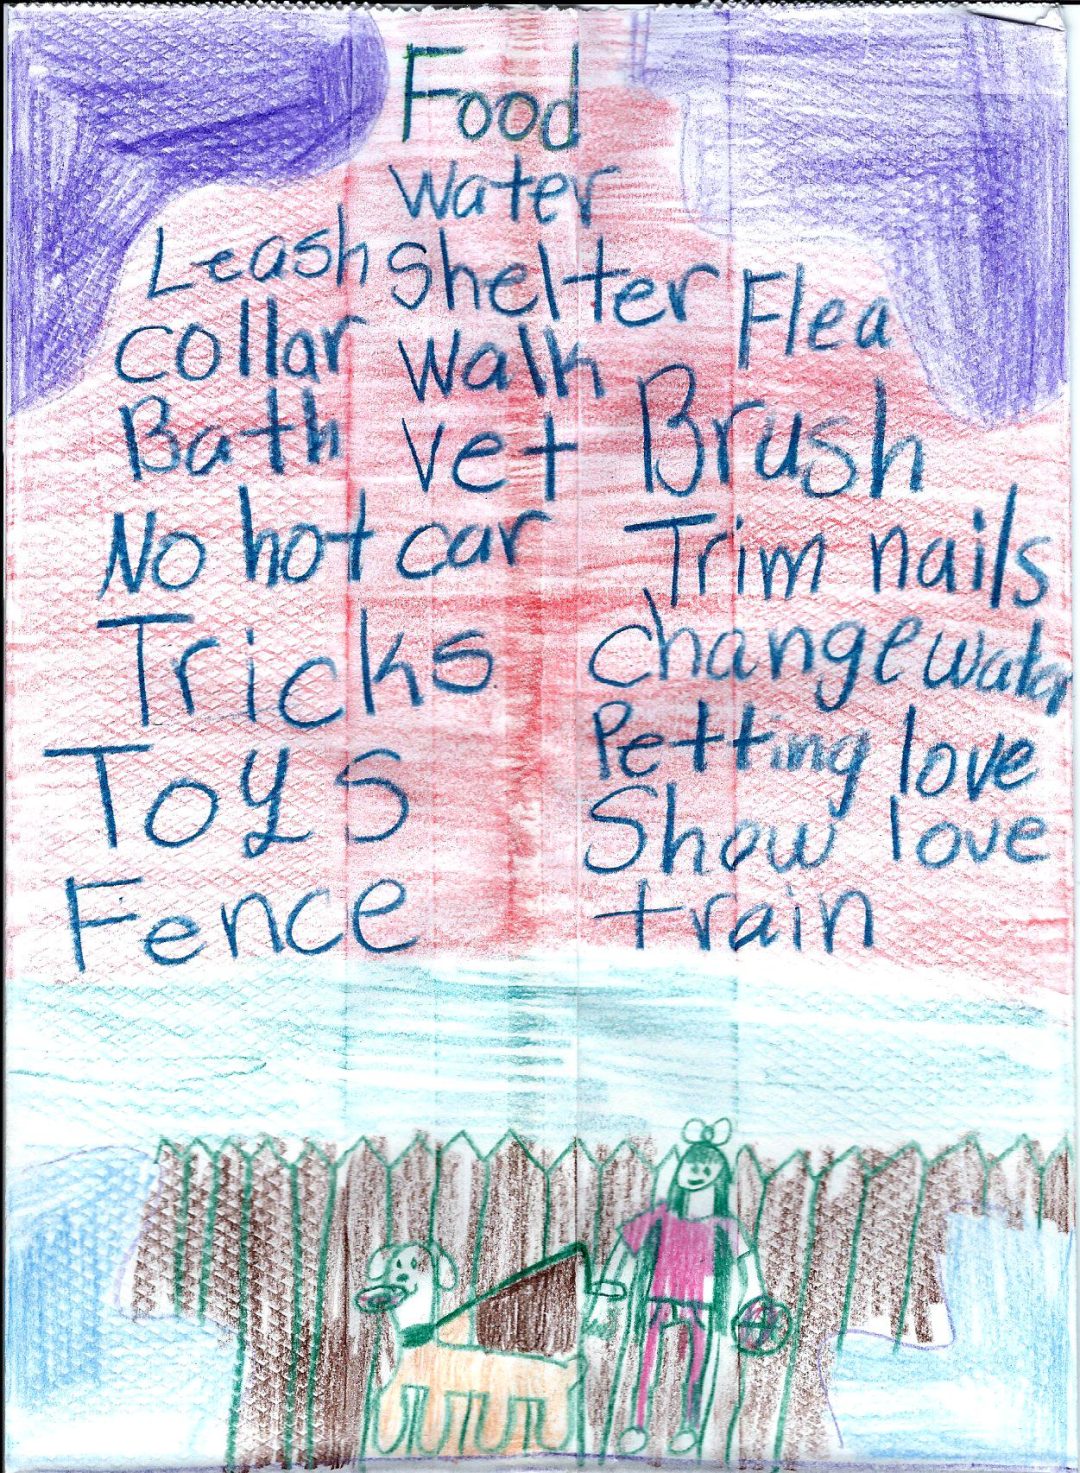 Food
water
Leash shelter Flea
collar walk
Brush
Bath vet
No hot car Trim nails
Tricks change water
Toys Petting love
Show love
Fence train